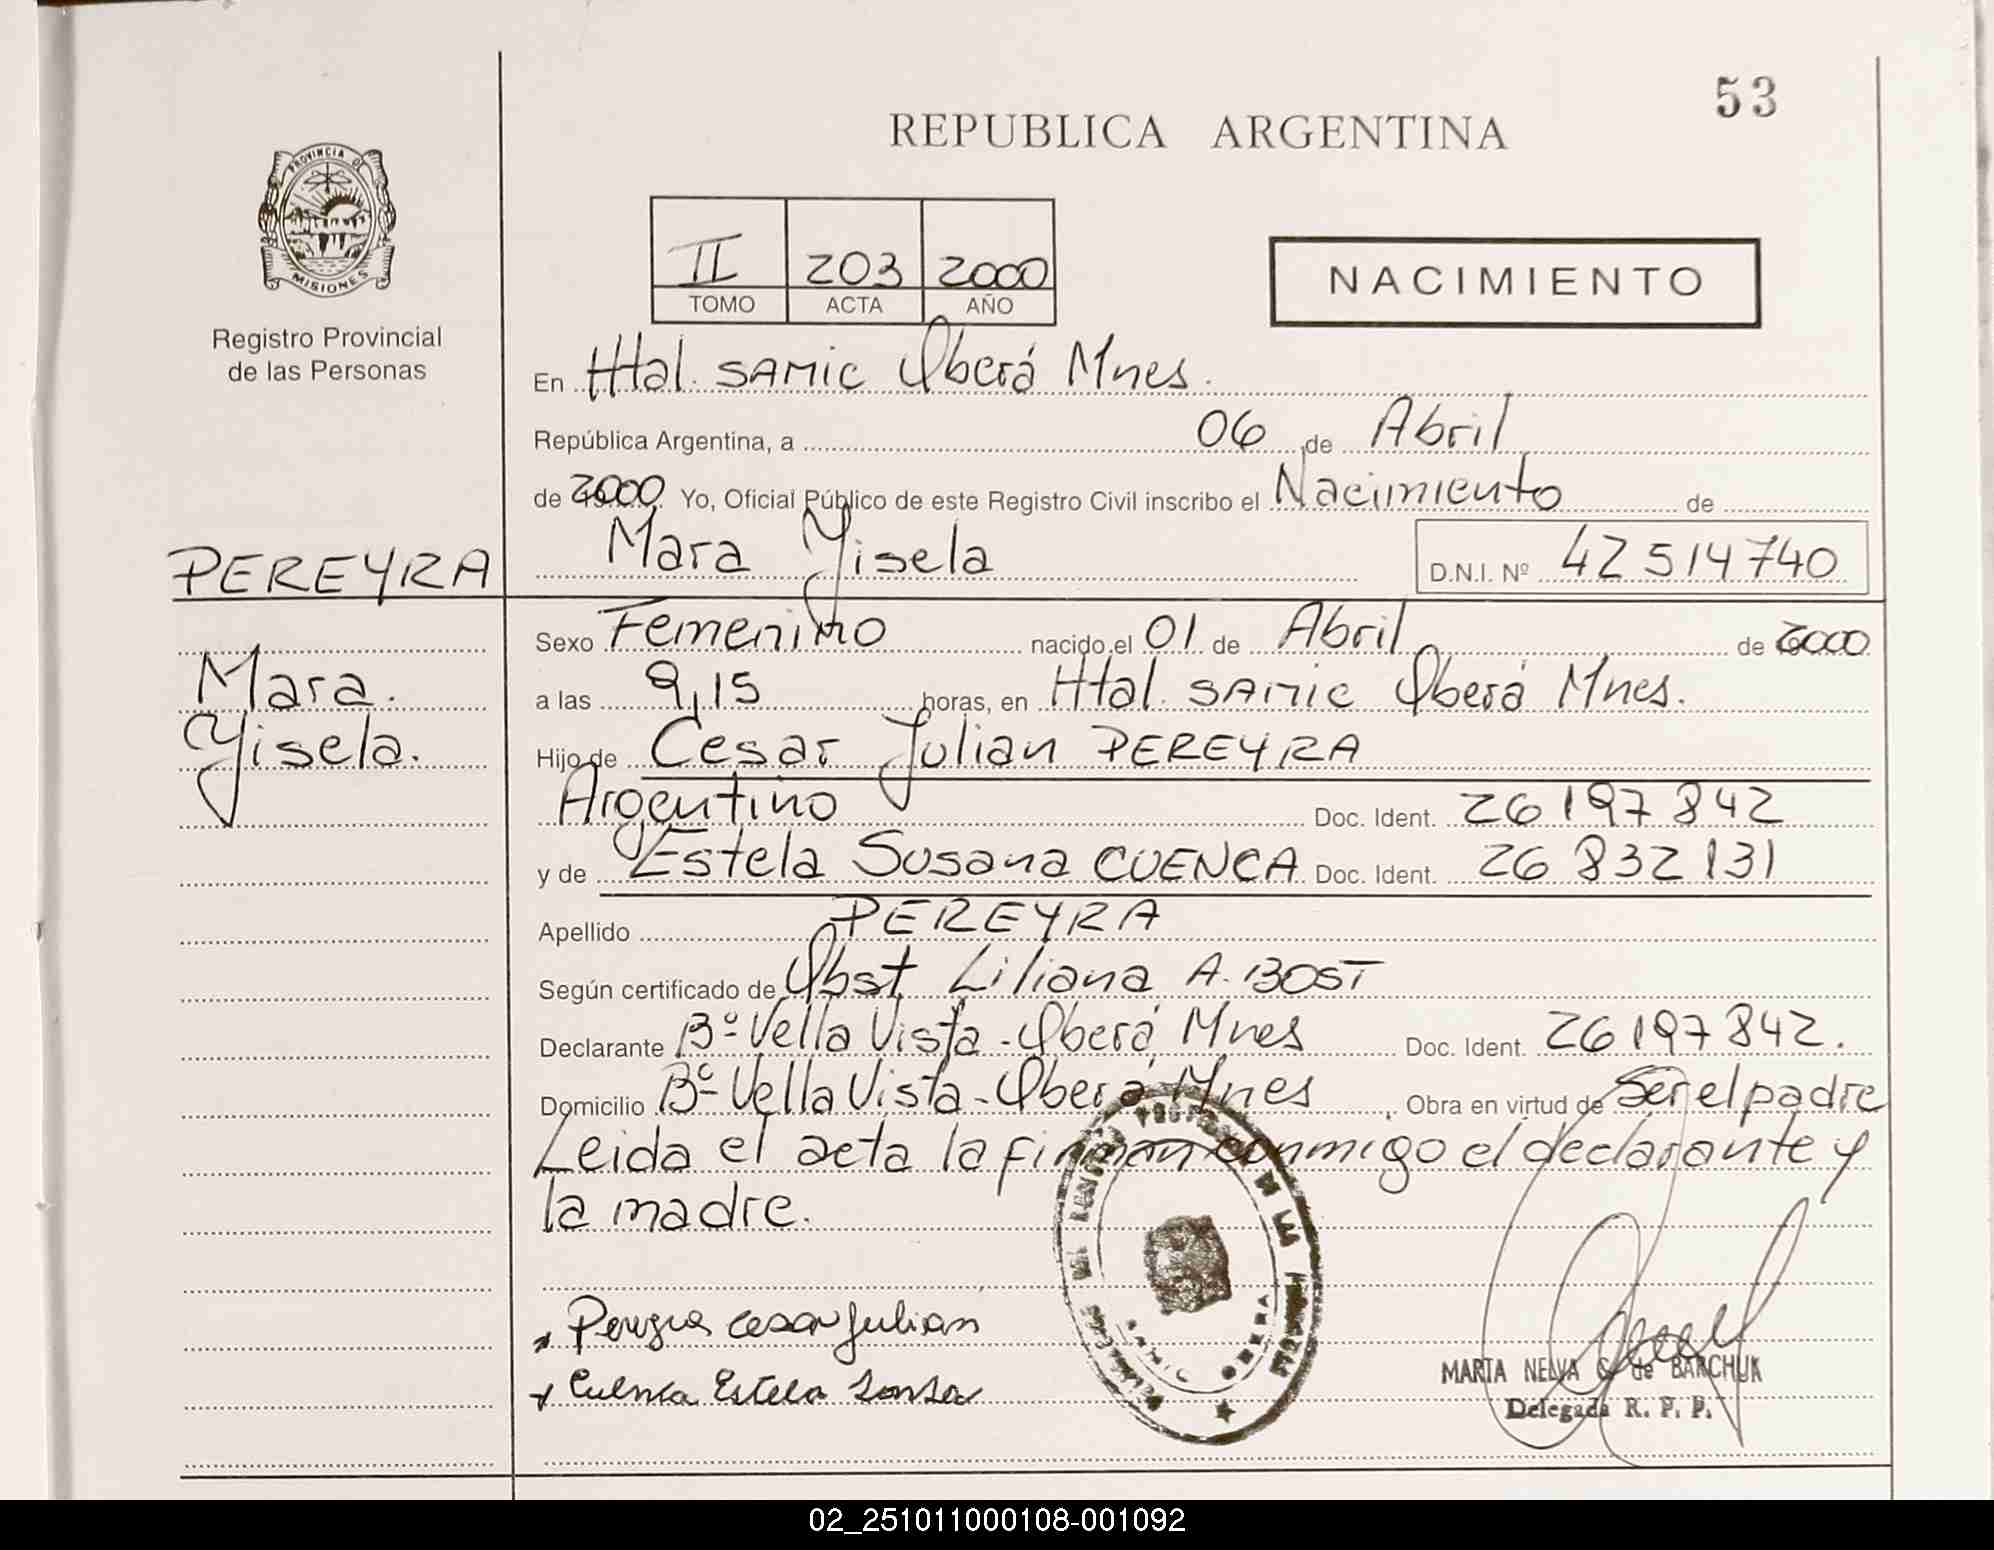 53
REPUBLICA ARGENTINA
PROVINCIA DE
MISIONES
Registro Provincial
de las Personas
II 203 2000
TOMO ACTA AÑO
NACIMIENTO
En Htal. SAMIC Oberá Mnes.
República Argentina, a 06 de Abril
de 2000 Yo, Oficial Público de este Registro Civil inscribo el Nacimiento de
PEREYRA
Mara Yisela D.N.I. Nº 42514740
Mara.
Yisela.
Sexo Femenino nacido el 01 de Abril de 2000
a las 9,15 horas, en Htal. SAMIC Oberá Mnes.
Hijo de Cesar Julian PEREYRA
Argentino Doc. Ident. 26197842
y de Estela Susana CUENCA Doc. Ident. 26 832 131
Apellido PEREYRA
Según certificado de Obst Liliana A. BOST
Declarante Bº Vella Vista - Oberá Mnes Doc. Ident. 26197842.
Domicilio Bº Vella Vista - Oberá Mnes, Obra en virtud de Ser el padre
Leida el acta la firman conmigo el declarante y
la madre.
Pereyra cesar Julian
Cuenca Estela
DE LAS
OBERA
MARTA NELVA G de BARCHUK
Delegada R. P. P.
02_251011000108-001092